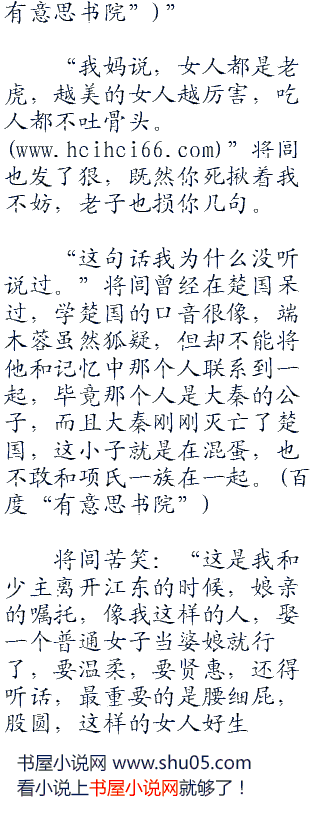 有意思书院”)”
“我妈说，女人都是老
虎，越美的女人越厉害，吃
人都不吐骨头。
(www.hcihci66.com)”将闾
也发了狠，既然你死揪着我
不妨，老子也损你几句。
“这句话我为什么没听
说过。”将闾曾经在楚国呆
过，学楚国的口音很像，端
木蓉虽然狐疑，但却不能将
他和记忆中那个人联系到一
起，毕竟那个人是大秦的公
子，而且大秦刚刚灭亡了楚
国，这小子就是在混蛋，也
不敢和项氏一族在一起。(百
度“有意思书院”)
将闾苦笑：“这是我和
少主离开江东的时候，娘亲
的嘱托，像我这样的人，娶
一个普通女子当婆娘就行
了，要温柔，要贤惠，还得
听话，最重要的是腰细屁，
股圆，这样的女人好生
书屋小说网 www.shu05.com
看小说上书屋小说网就够了！